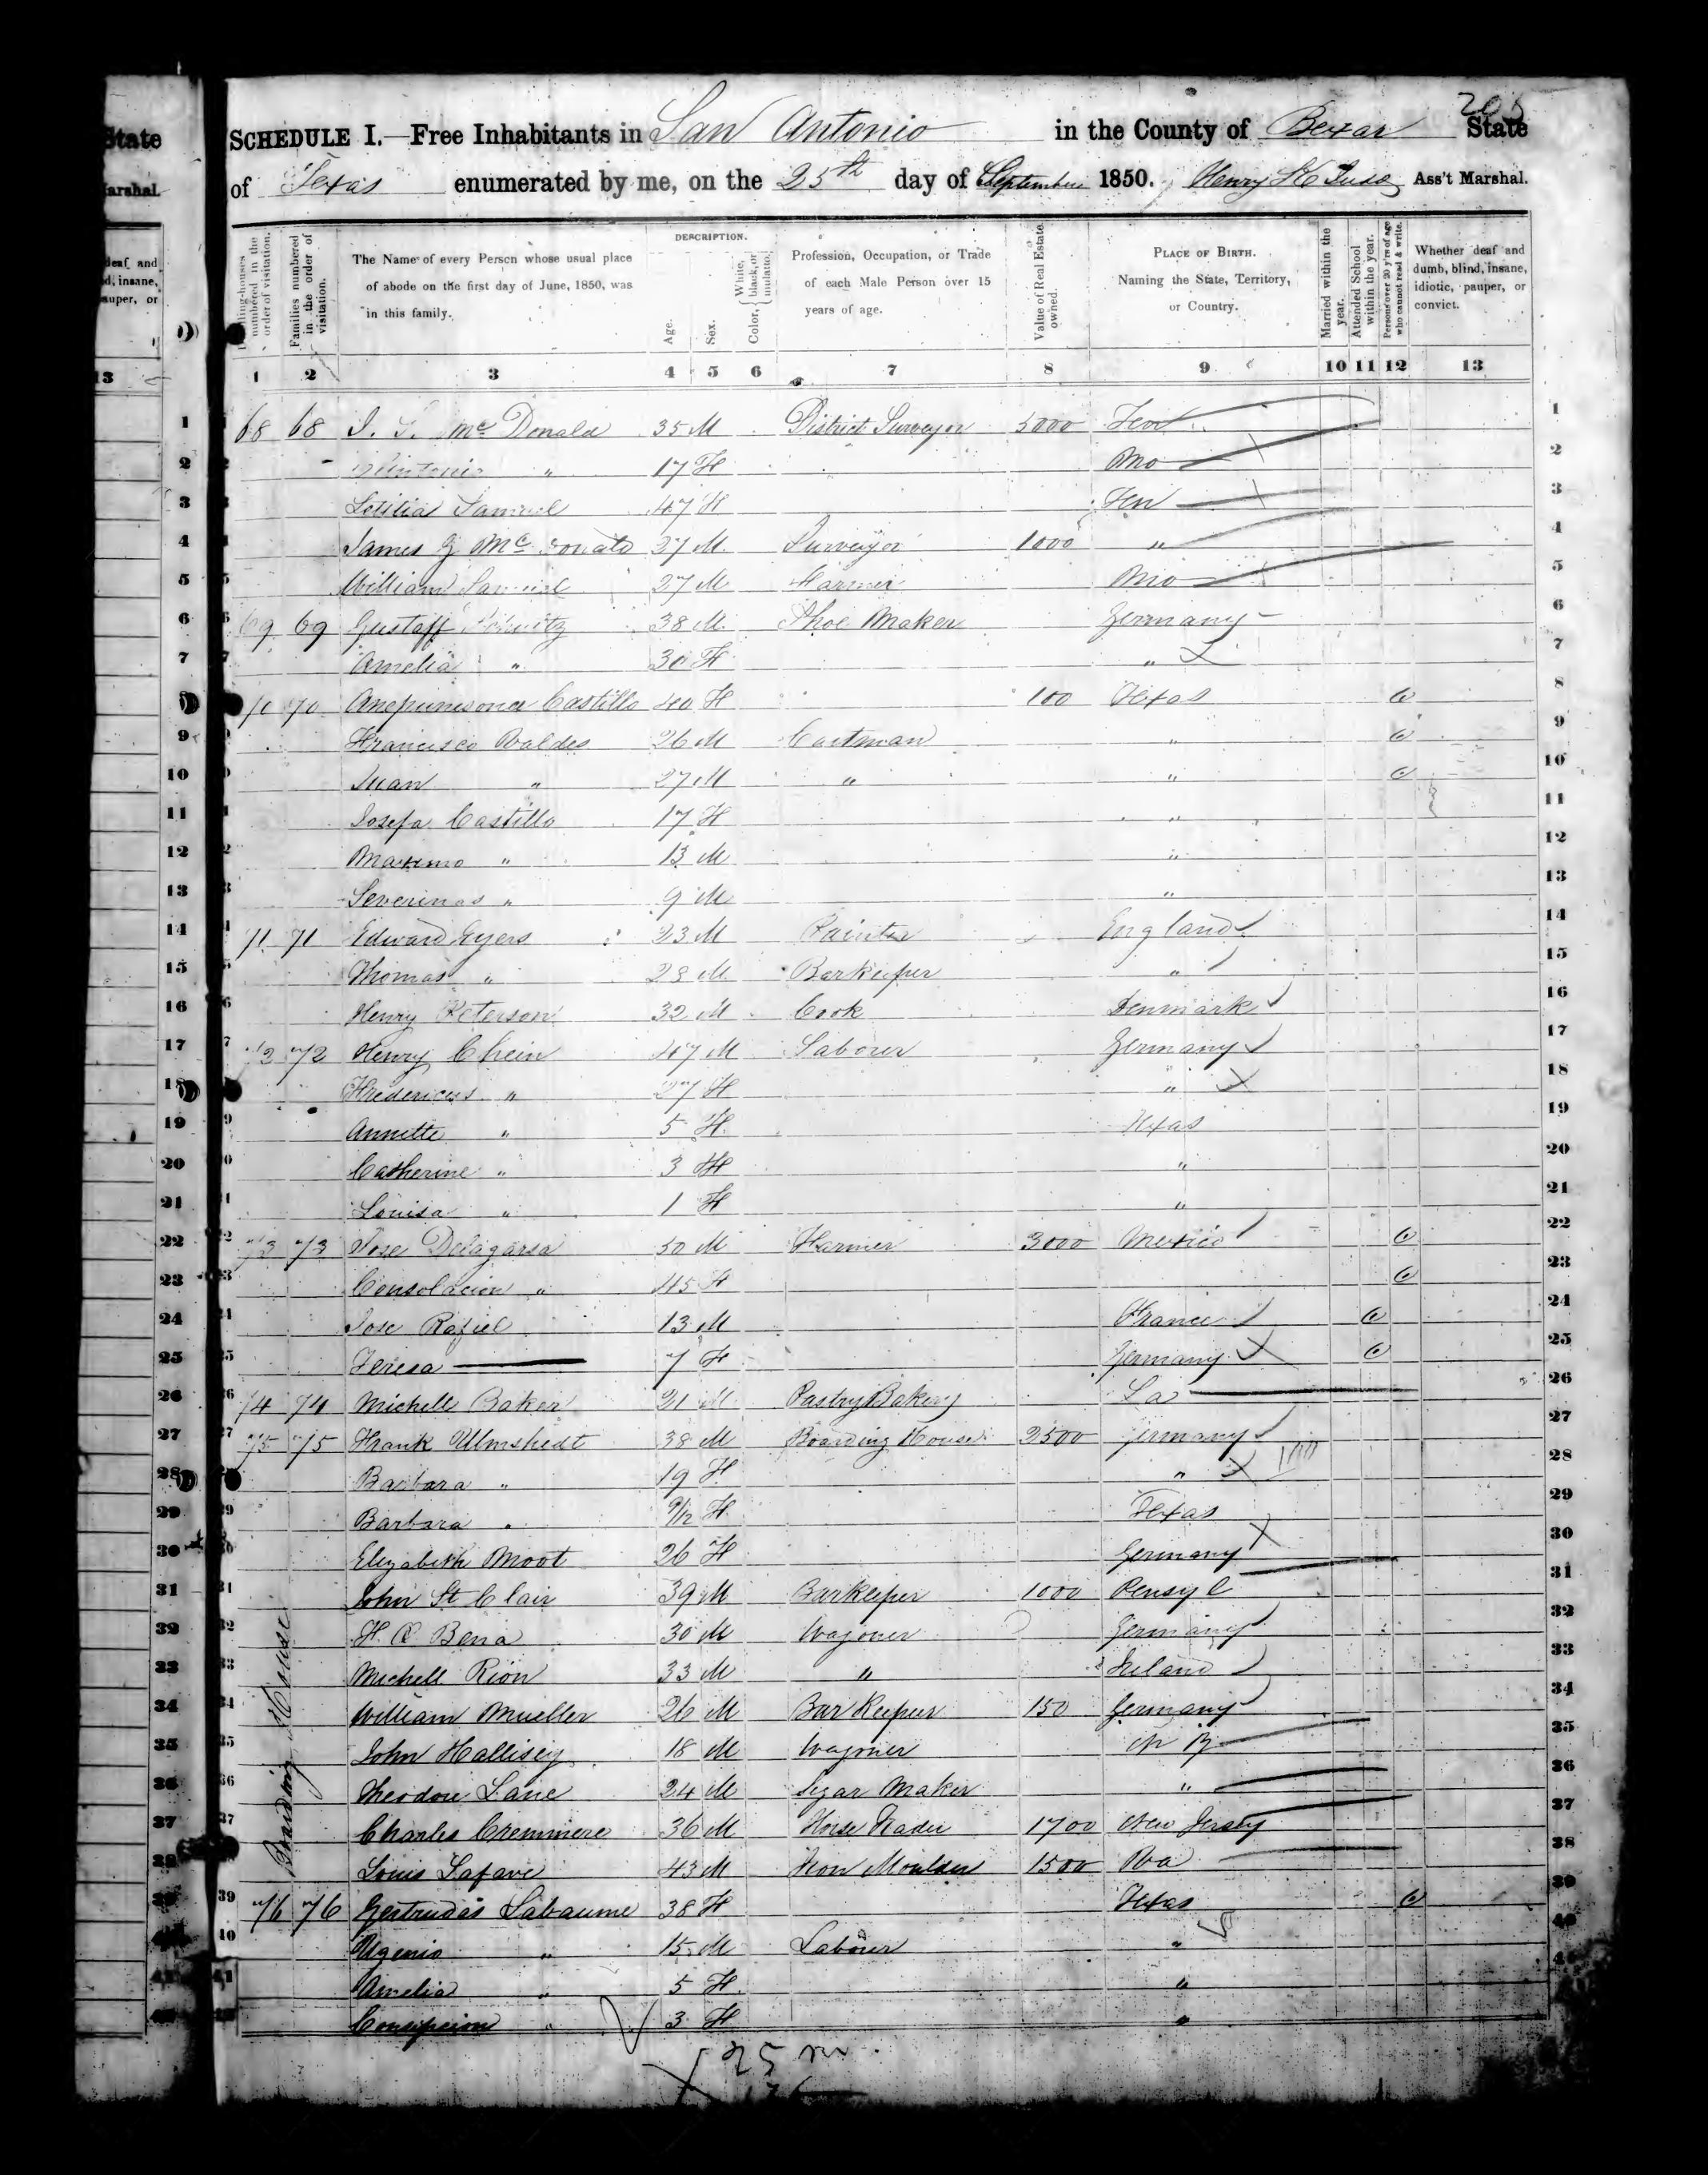 205
SCHEDULE I.—Free Inhabitants in San Antonio in the County of Bexar State
of Texas enumerated by me, on the 25th day of September 1850. Henry Ass't Marshal.
Dwelling-houses numbered in the order of visitation.
Families numbered in the order of visitation.
The Name of every Person whose usual place of abode on the first day of June, 1850, was in this family.
DESCRIPTION.
Age.
Sex.
Color, White, black, or mulatto.
Profession, Occupation, or Trade of each Male Person over 15 years of age.
Value of Real Estate owned.
PLACE OF BIRTH. Naming the State, Territory, or Country.
Married within the year.
Attended School within the year.
Persons over 20 y'rs of age who cannot read & write.
Whether deaf and dumb, blind, insane, idiotic, pauper, or convict.
1 2 3 4 5 6 7 8 9 10 11 12 13
1 68 68 Mc Donald 35 M District Surveyor 5000 1
2 " 17 F Mo 2
3 Letitia Samuel 47 F Ten 3
4 James G Mc Donald 27 M Surveyor 1000 " 4
5 William Samuel 27 M Farmer Mo 5
6 69 69 Gustaff 38 M Shoe Maker Germany 6
7 Amelia " 30 F " 7
8 70 70 Castillo 40 F 100 Texas 8
9 Francisco Valdes 26 M Cartman " 9
10 Juan " 27 M " " 10
11 Josefa Castillo 17 F " 11
12 Maximo " 13 M " 12
13 Severinas " 9 M " 13
14 71 71 Edward Eyers 23 M Painter England 14
15 Thomas " 28 M Barkeeper " 15
16 Henry Peterson 32 M Cook Denmark 16
17 72 72 Henry Chein 47 M Labourer Germany 17
18 " 27 F " 18
19 Annette " 5 F Texas 19
20 Catherine " 3 F " 20
21 Louisa " 1 F " 21
22 73 73 Jose Delagarsa 50 M Farmer 3000 Mexico 22
23 Consolacion " 45 F 23
24 Jose Rafiel 13 M France 24
25 Teresa — 7 F Germany 25
26 74 74 Michelle Baker 21 M Pastry Bakery La 26
27 75 75 Frank Ulmshedt 38 M Boarding House 2500 Germany 27
28 Barbara " 19 F " 28
29 Barbara " 9/12 F Texas 29
30 Elizabeth Moot 26 F Germany 30
Boarding House
31 John St Clair 39 M Barkeeper 1000 Pensyl 31
32 Bena 30 M Wagoner Germany 32
33 Michell Rion 33 M " Ireland 33
34 William Mueller 26 M Bar Keeper 150 Germany 34
35 John Hallisey 18 M Wagoner N Y 35
36 Theodore Lane 24 M Segar Maker " 36
37 Charles Cremmere 36 M Horse Trader 1700 New Jersey 37
38 Louis Lafave 43 M Iron Moulder 1500 38
39 76 76 Gertrudas Labaume 38 F Texas 39
40 Ugenio " 15 M Labourer " 40
41 Amelia " 5 F " 41
Consepcion " 3 F "
25 m